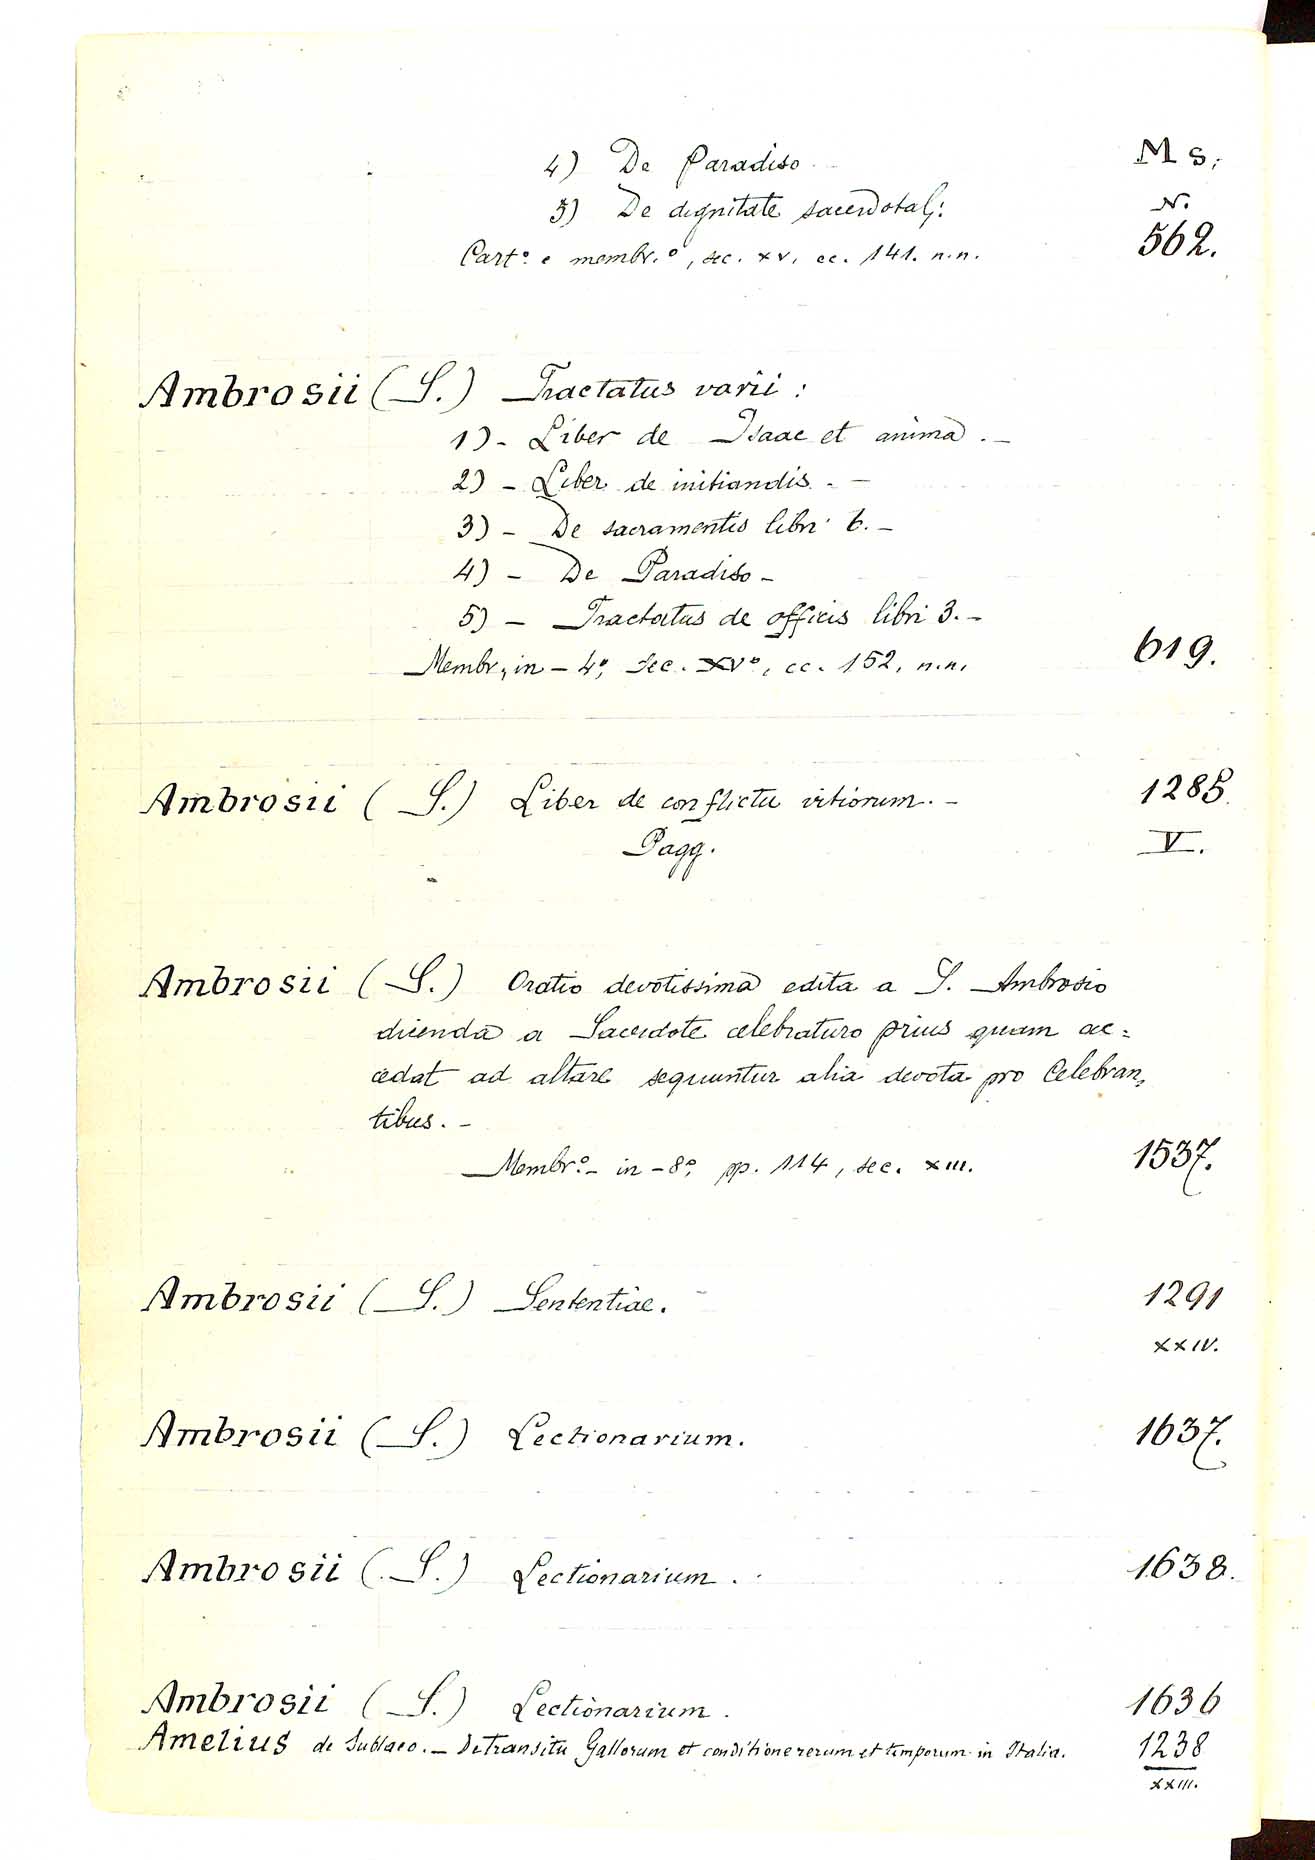 4) De Paradiso Ms.
5) De dignitate sacerdotali: N.
Cart.º e membr.º, sec. XV. cc. 141. n.n. 562.
Ambrosii (S.) Tractatus varii:
1) - Liber de Isaac et anima. -
2) - Liber de initiandis. -
3) - De sacramentis libri 6. -
4) - De Paradiso -
5) - Tractatus de officis libri 3. -
Membr, in - 4º, sec. XVº, cc. 152. n.n. 619.
Ambrosii (S.) Liber de conflictu vitiorum. - 1285
Pagg. V.
Ambrosii (S.) Oratio devotissima edita a S. Ambrosio
dicenda a Sacerdote celebraturo prius quam ac=
cedat ad altare sequuntur alia devota pro Celebran,
tibus. -
Membr.º - in - 8º, pp. 114, sec. XIII. 1537.
Ambrosii (S.) Sententiae. 1291
XXIV.
Ambrosii (S.) Lectionarium. 1637.
Ambrosii (S.) Lectionarium. 1638.
Ambrosii (S.) Lectionarium. 1636
Amelius de Sublaeo. - De transitu Gallorum et conditione rerum et temporum in Italia. 1238
XXIII.